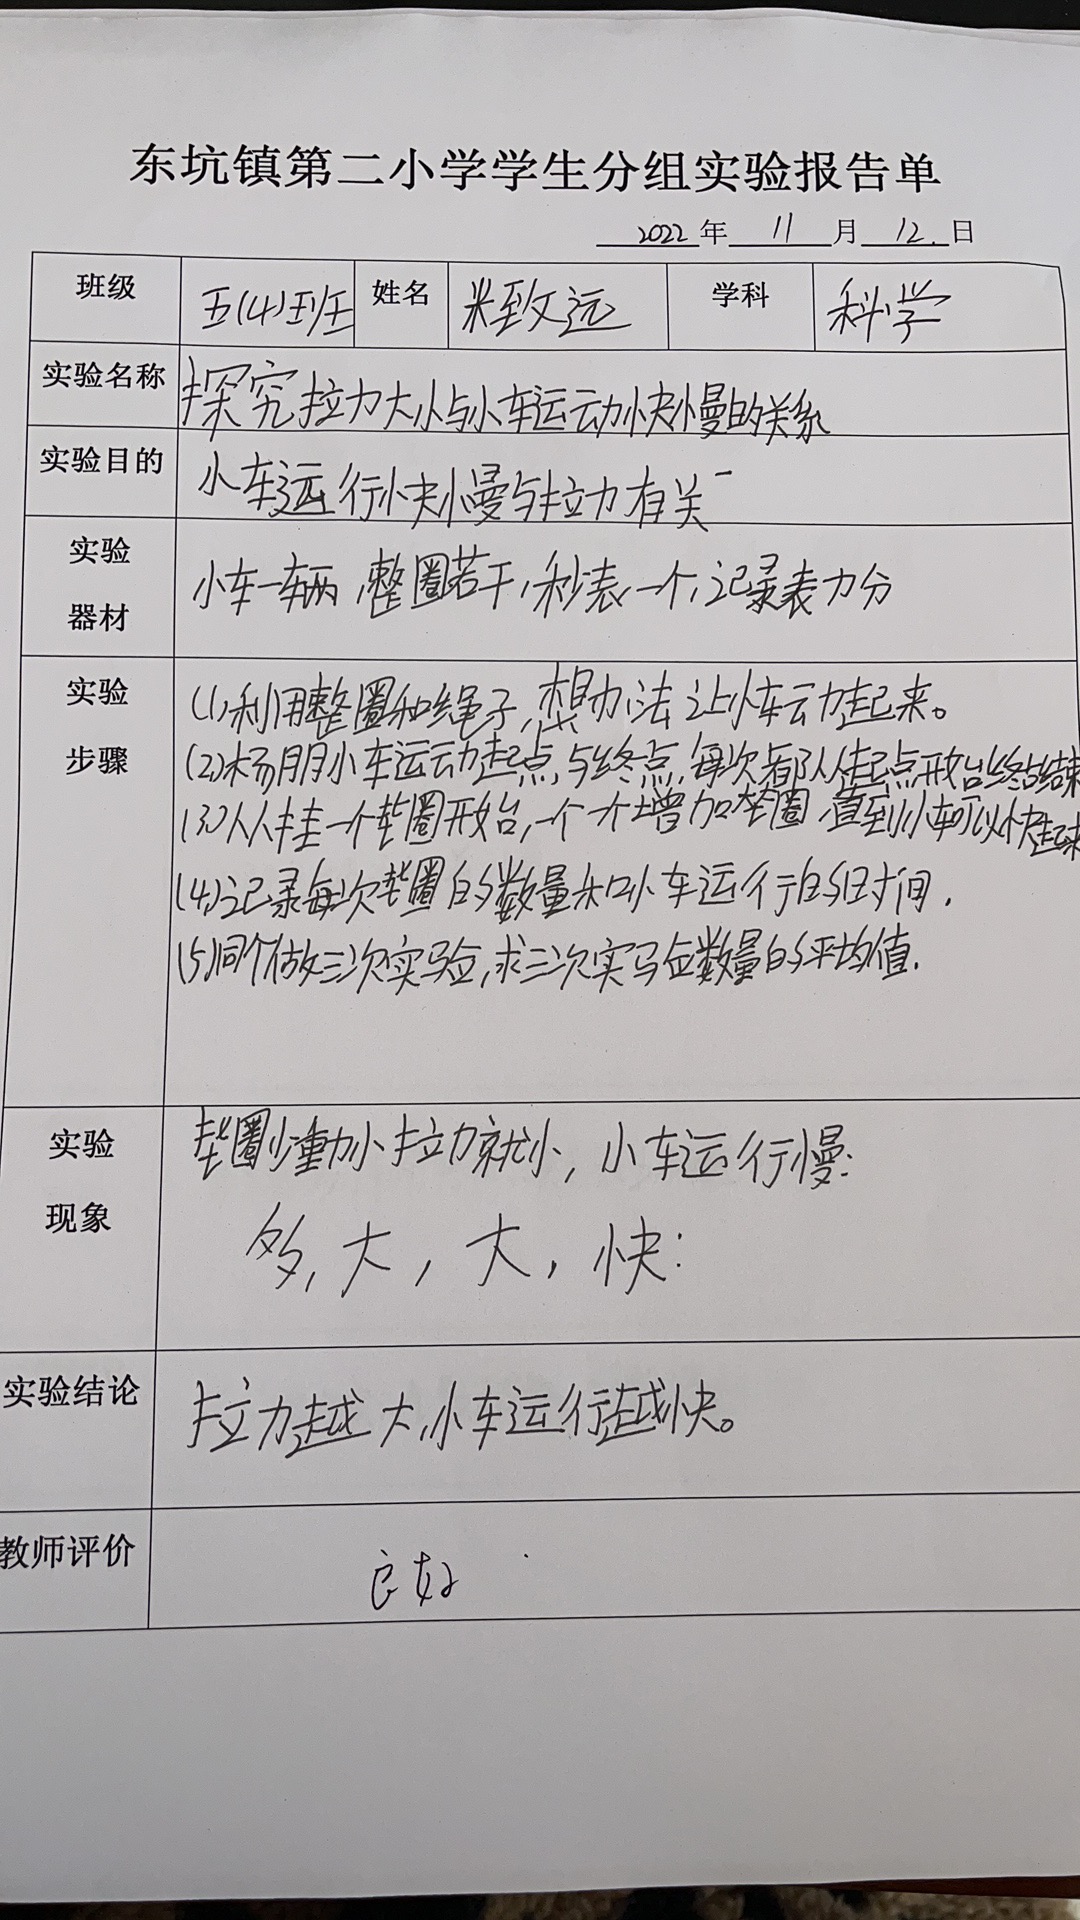 东坑镇第二小学学生分组实验报告单
2022年 11 月 12. 日
班级 五(4)班 姓名 米致远 学科 科学
实验名称 探究拉力大小与小车运动快慢的关系
实验目的 小车运行快慢与拉力有关
实验器材 小车一辆,整圈若干,秒表一个,记录表力分
实验步骤 (1)利用整圈和绳子,想办法让小车云力起来。
(2)杨朋小车运动起点,与终点,每次都从起点开始终结束
(3)从挂一个垫圈开始,一个个增加垫圈,直到小车可以快起来
(4)记录每次垫圈的数量和小车运行的时间.
(5)同个做三次实验,求三次实验数量的平均值.
实验现象 垫圈少重力小拉力就小,小车运行慢:
多,大,大,快:
实验结论 拉力越大,小车运行越快。
教师评价 良好